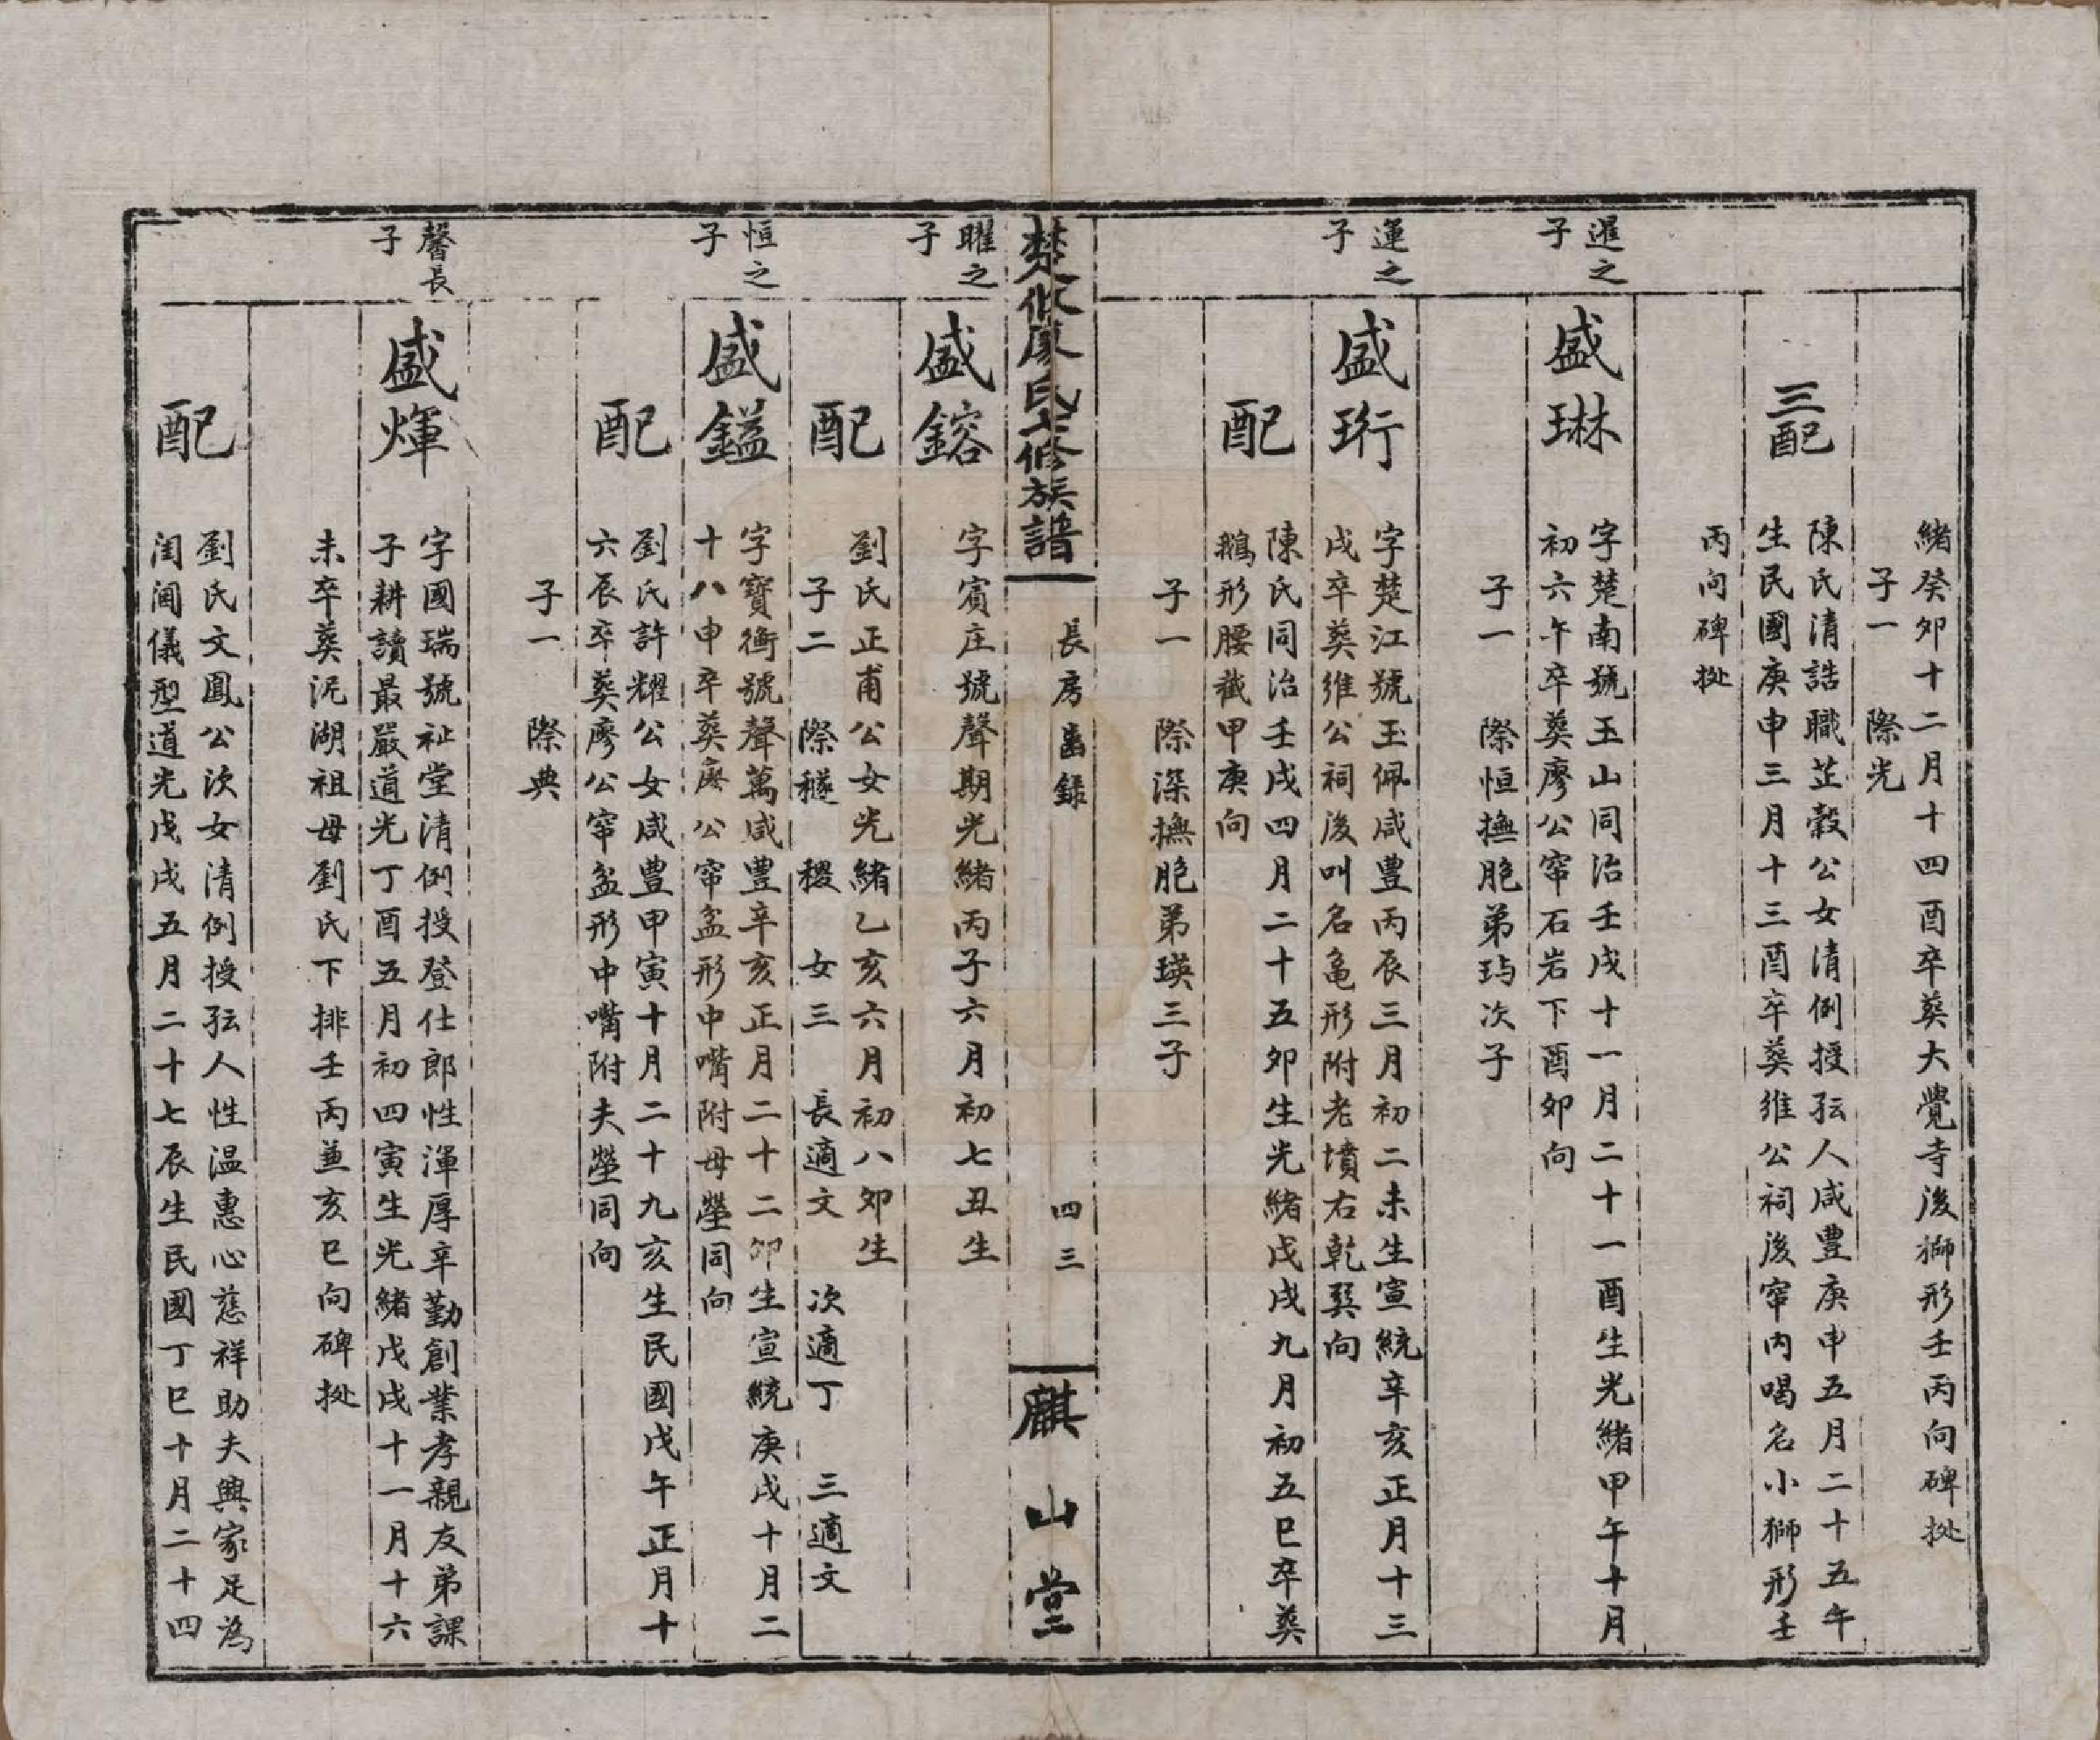 緒癸卯十二月十四酉卒葬大覺寺後獅形壬丙向碑㧗
子一　際光
三配
陳氏清誥職芷穀公女清例授孺人咸豐庚申五月二十五午
生民國庚申三月十三酉卒葬維公祠後窂內喝名小獅形壬
丙向碑㧗
暹之
子
盛琳
字楚南號玉山同治壬戌十一月二十一酉生光緒甲午十月
初六午卒葬廖公窂石岩下酉卯向
子一　際恒撫胞弟玙次子
運之
子
盛珩
字楚江號玉佩咸豐丙辰三月初二未生宣統辛亥正月十三
戌卒葬維公祠後叫名龜形附老墳右乾巽向
配
陳氏同治壬戌四月二十五卯生光緒戊戌九月初五巳卒葬
鵝形腰截甲庚向
子一　際深撫胞弟瑛三子
楚攸廖氏七修族譜
長房齒錄
四三
麒山堂
曜之
子
盛鎔
字賓庄號聲期光緒丙子六月初七丑生
配
劉氏正甫公女光緒乙亥六月初八卯生
子二　際穟　稷　女三　長適文　次適丁　三適文
恒之
子
盛鎰
字寶衡號聲萬咸豐辛亥正月二十二卯生宣統庚戌十月二
十八申卒葬廖公窂盆形中嘴附母塋同向
配
劉氏許耀公女咸豐甲寅十月二十九亥生民國戊午正月十
六辰卒葬廖公窂盆形中嘴附夫塋同向
子一　際典
馨長
子
盛煇
字國瑞號祉堂清例授登仕郎性渾厚辛勤創業孝親友弟課
子耕讀最嚴道光丁酉五月初四寅生光緒戊戌十一月十六
未卒葬泥湖祖母劉氏下排壬丙兼亥巳向碑㧗
配
劉氏文鳳公次女清例授孺人性温惠心慈祥助夫興家足為
閨閫儀型道光戊戌五月二十七辰生民國丁巳十月二十四